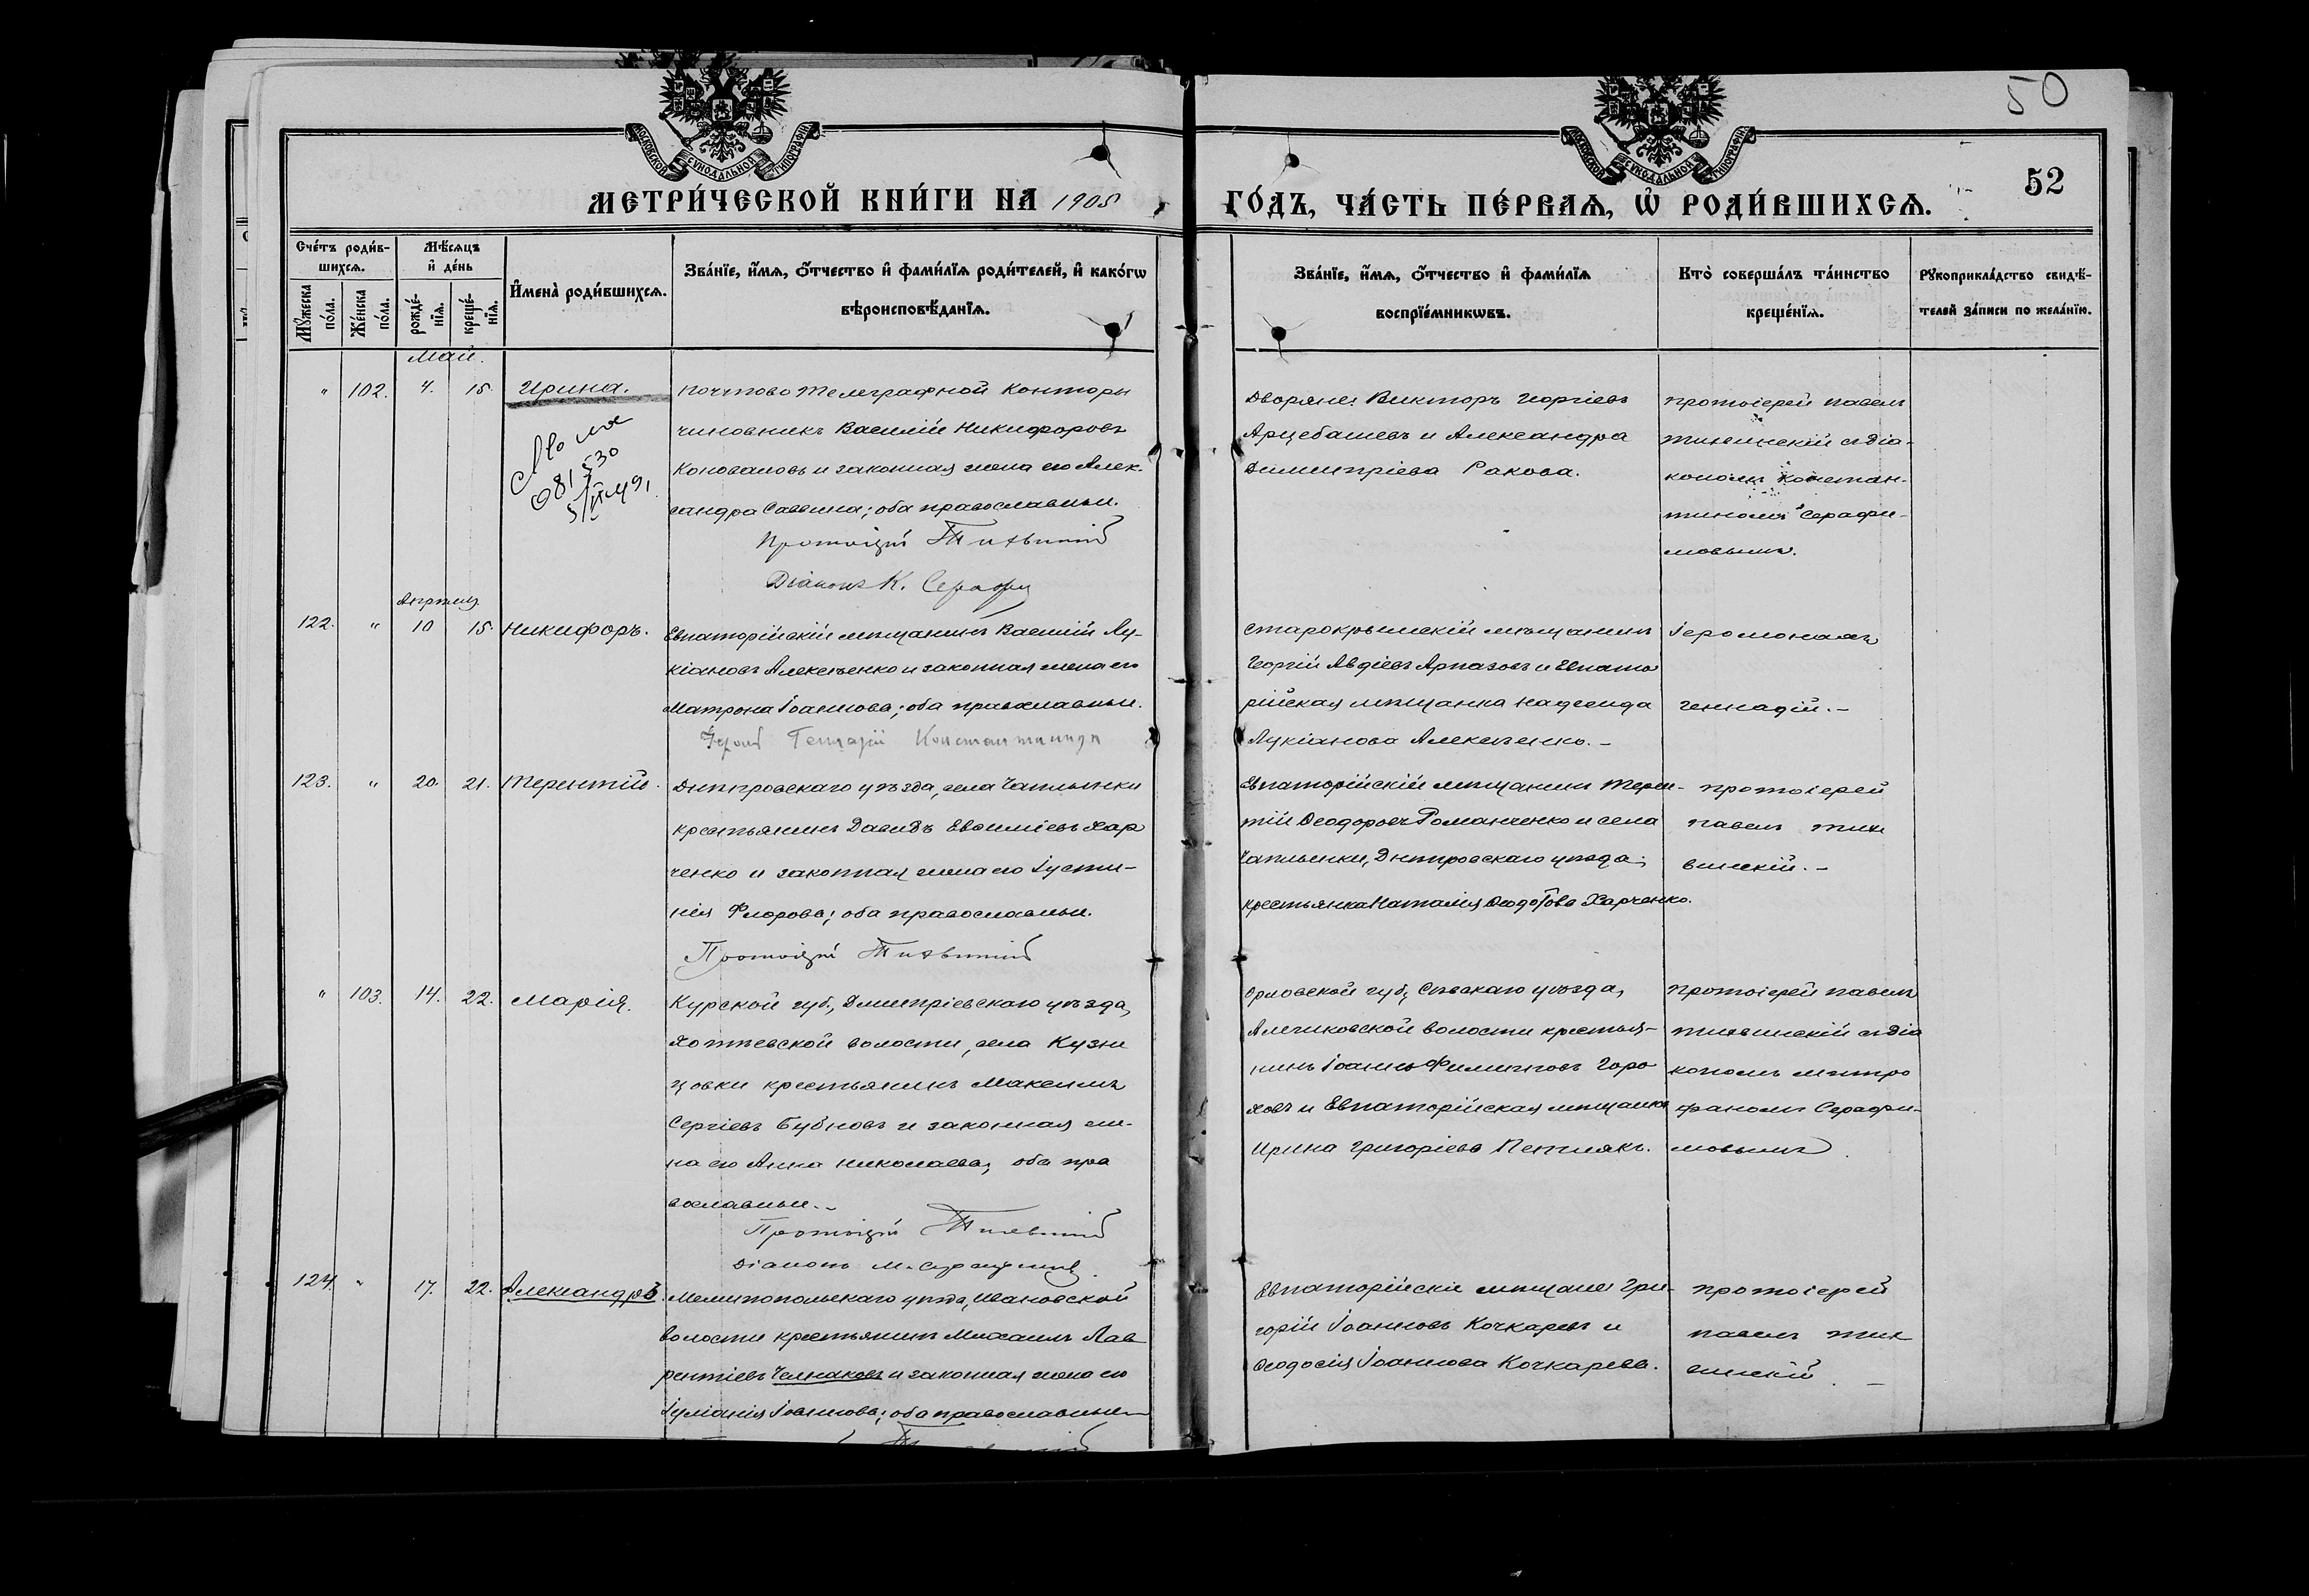 50
МОСКОВСКОЙ СѴНОДАЛЬНОЙ ТИПОГРАФІИ
МОСКОВСКОЙ СѴНОДАЛЬНОЙ ТИПОГРАФІИ
52
МЕТРИ́ЧЕСКОЙ КНИ́ГИ НА 1905 ГО́ДЪ, ЧА́СТЬ ПЕ́РВАѦ, Ѡ҆ РОДИ́ВШИХСѦ.
Сче́тъ роди́вшихсѧ.
Мꙋ́жеска по́ла.
Же́нска по́ла.
Мѣ́сѧцъ и҆ де́нь
рожде́нїѧ.
креще́нїѧ.
И҆мена̀ роди́вшихсѧ.
Зва́нїе, и҆́мѧ, ѻ҆́тчество и҆ фами́лїѧ роди́телей, и҆ како́гѡ
вѣроисповѣ́данїѧ.
Зва́нїе, и҆́мѧ, ѻ҆́тчество и҆ фами́лїѧ
воспрїе́мникѡвъ.
Кто̀ соверша́лъ та́инство
креще́нїѧ.
Рꙋкоприкла́дство свидѣ́телей за́писи по жела́нїю.
Май.
" 102. 4. 15. Ирина.
Почтово телеграфной конторы
чиновникъ Василій Никифоровъ
Коноваловъ и законная жена его Алек-
сандра Саввина; оба православные.
Протоіерей Тихвинскій
Діаконъ К. Сераф
Дворяне: Викторъ Георгіевъ
Арцебашевъ и Александра
Димитріева Ракова.
протоіерей Павелъ
Тихвинскій съ діа-
кономъ Констан-
тиномъ Серафи-
мовымъ.
081530
Апрѣль
122. " 10 15. Никифоръ.
Евпаторійскій мѣщанинъ Василій Лу-
кіановъ Алексѣенко и законная жена его
Матрона Іоаннова; оба православные.
Старокрымскій мѣщанинъ
Георгій Авдіевъ Арпазовъ и Евпато
рійская мѣщанка Надежда
Лукіанова Алексѣенко.-
Іеромонахъ
Геннадій.-
123. " 20. 21. Терентій.
Днѣпровскаго уѣзда, села Чаплынки
крестьянинъ Давидъ Евѳиміевъ Хар
ченко и законная жена его Іусти-
нія Флорова; оба православные.
Протоіерей Тихвинскій
Евпаторійскій мѣщанинъ Терен-
тій Ѳеодоровъ Романченко и села
Чаплынки, Днѣпровскаго уѣзда,
крестьянка Наталія Ѳеодотова Харченко.
протоіерей
Павелъ Тих
винскій.-
" 103. 14. 22. Марія.
Курской губ., Дмитріевскаго уѣзда,
волости, села Кузне
цовки крестьянинъ Максимъ
Сергіевъ Бубновъ и законная же-
на его Анна Николаева; оба пра
вославные.-
Протоіерей Тихвинскій
Діаконъ М. Серафимов
Орловской губ, Сѣвскаго уѣзда,
волости крестья-
нинъ Іоаннъ Филипповъ Горо
ховъ и Евпаторійская мѣщанка
Ирина Григоріева Петлякъ.
протоіерей Павелъ
Тихвинскій съ діа
кономъ Митро
фаномъ Серафи-
мовымъ
124. " 17. 22. Александръ.
Мелитопольскаго уѣзда, Ивановской
волости крестьянинъ Михаилъ Лав
рентіевъ Челнаковъ и законная жена его
Іуліанія Іоаннова; оба православные-
Евпаторійскіе мѣщане: Гри-
горій Іоанновъ Кочкаревъ и
Ѳеодосія Іоаннова Кочкарева.
протоіерей
Павелъ Тих
винскій.-